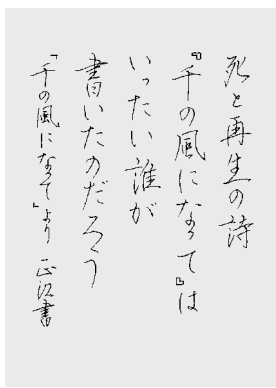 死と再生の詩
『千の風になって』は
いったい誰が
書いたのだろう
「千の風になって」より 正江書